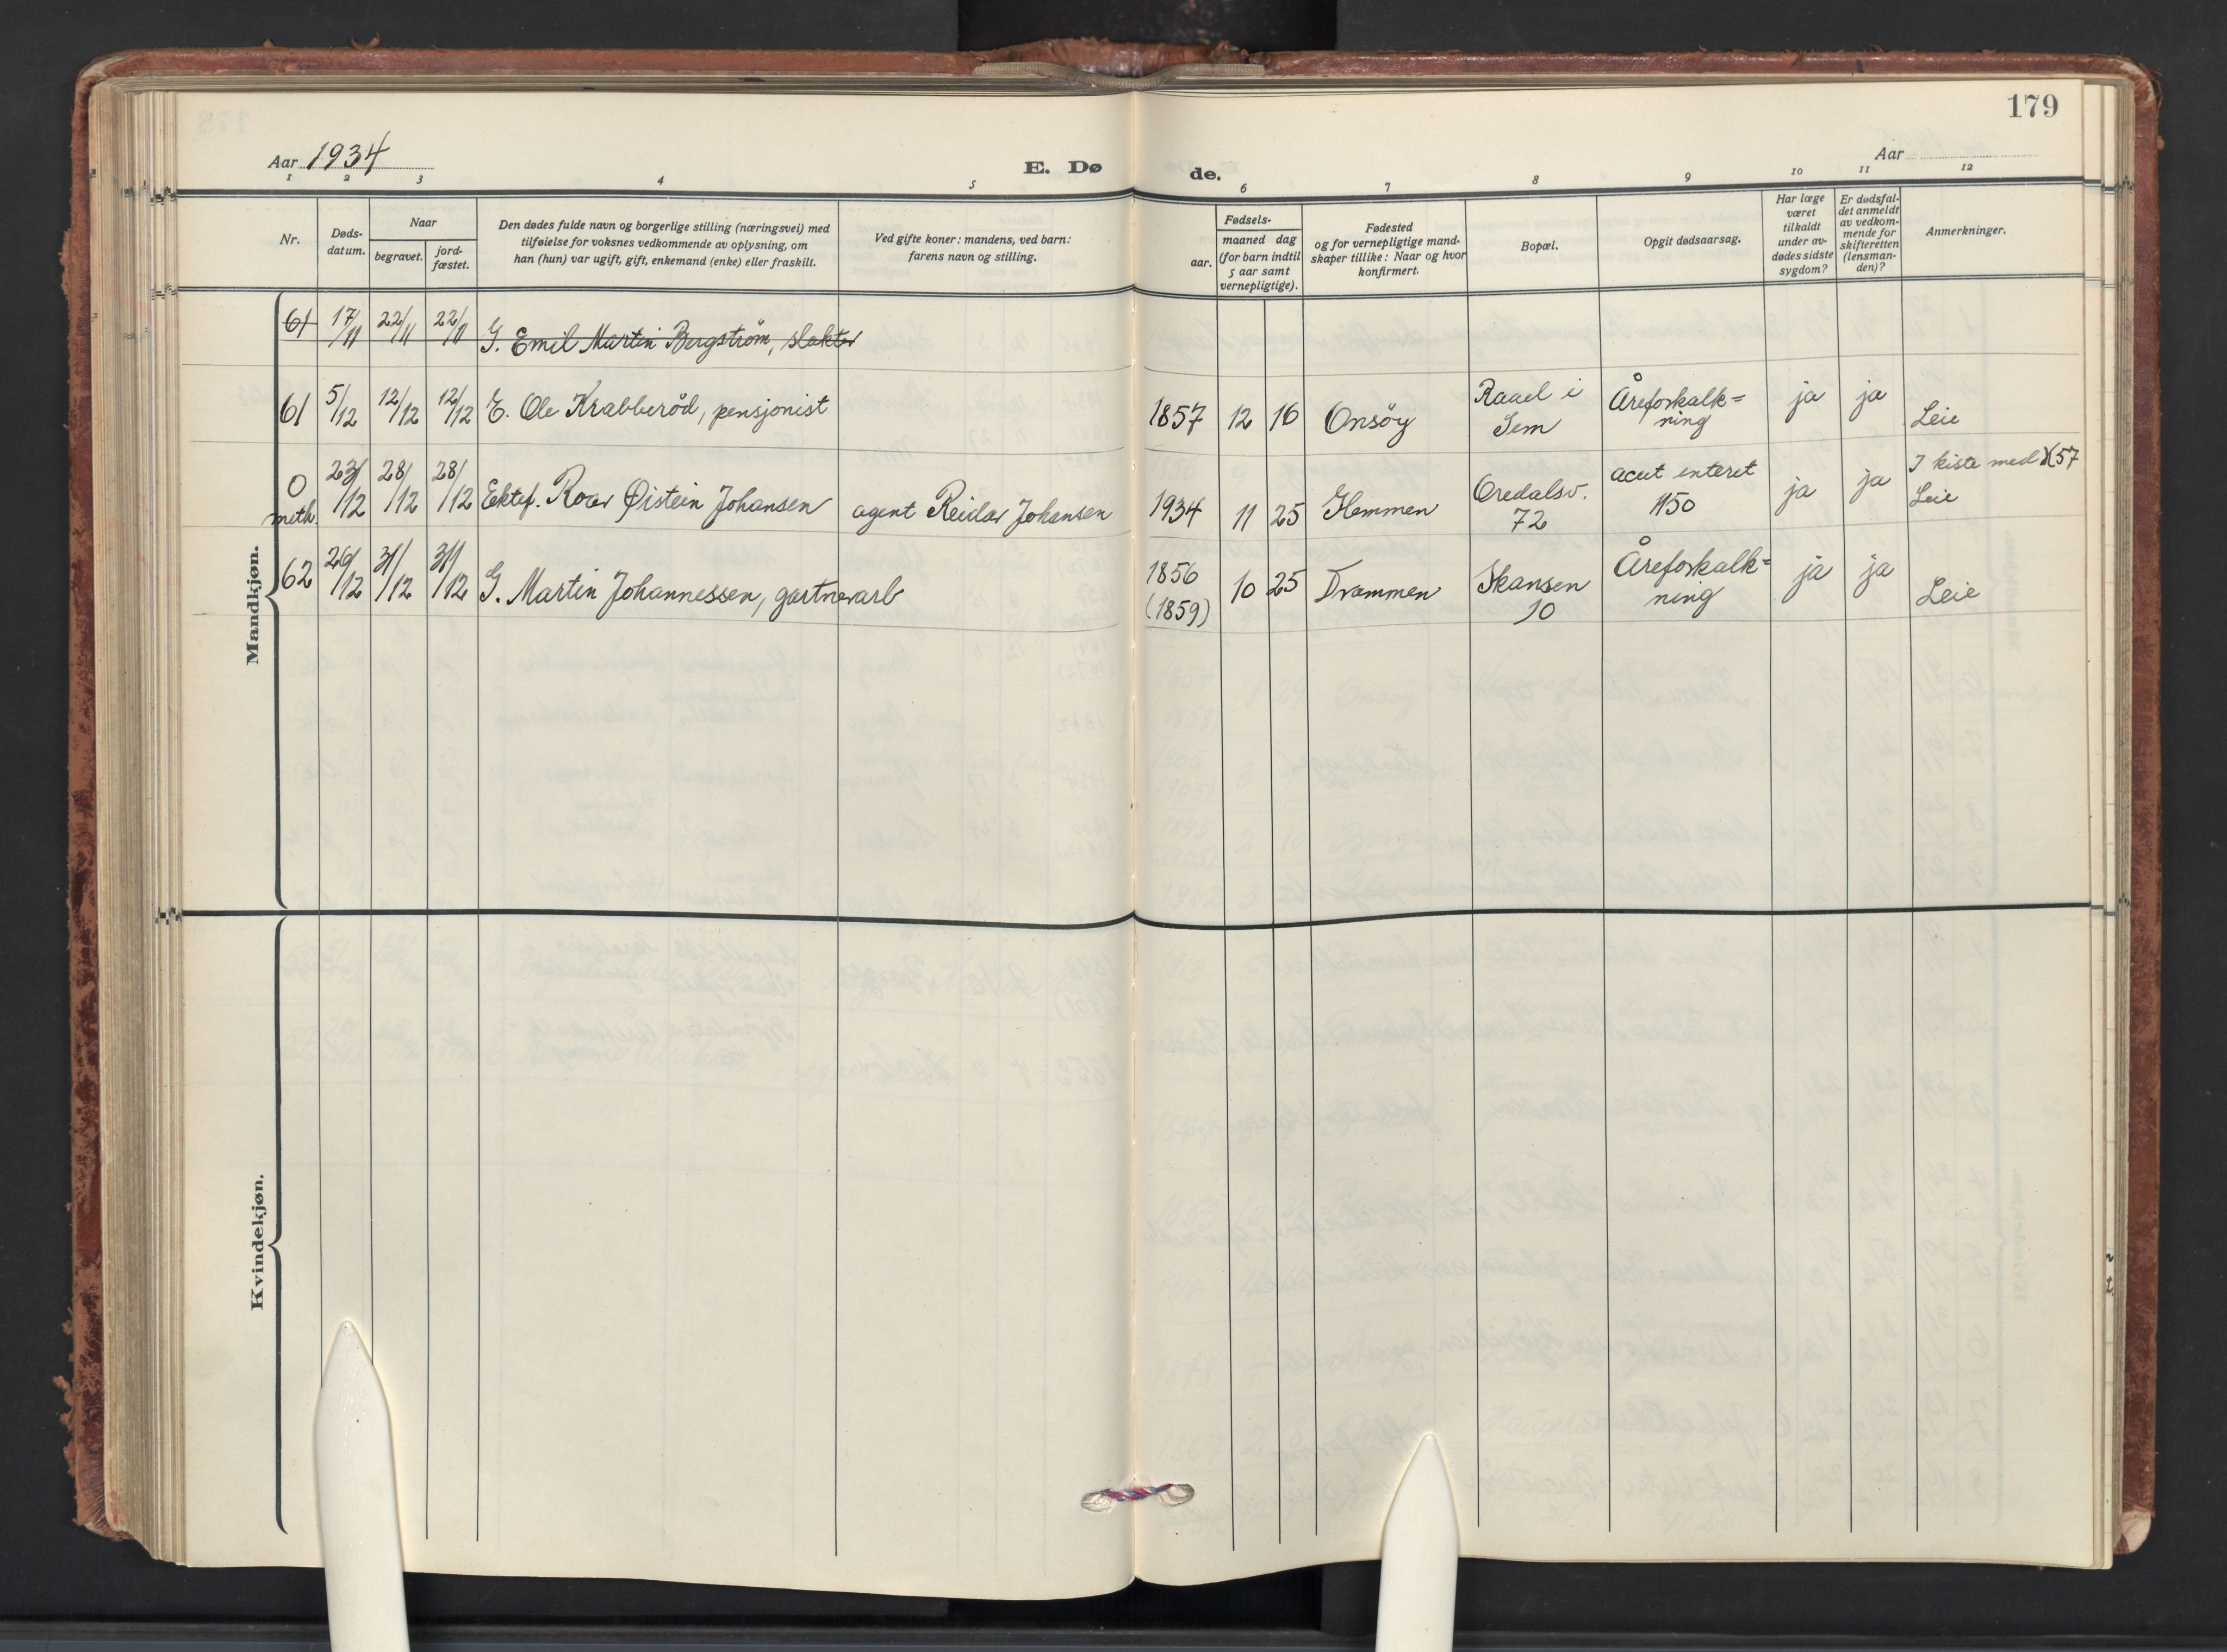 179
Aar 1934
E. Dø
de.
Aar
1 2 3 4 5 6 7 8 9 10 11 12
Nr.
Døds-
datum.
Naar
begravet.
jord-
fæstet.
Den dødes fulde navn og borgerlige stilling (næringsvei) med
tilføielse for voksnes vedkommende av oplysning, om
han (hun) var ugift, gift, enkemand (enke) eller fraskilt.
Ved gifte koner: mandens, ved barn:
farens navn og stilling.
Fødsels-
aar.
maaned dag
(for barn indtil
5 aar samt
vernepligtige).
Fødested
og for vernepligtige mand-
skaper tillike: Naar og hvor
konfirmert.
Bopæl.
Opgit dødsaarsag.
Har læge
været
tilkaldt
under av-
dødes sidste
sygdom?
Er dødsfal-
det anmeldt
av vedkom-
mende for
skifteretten
(lensman-
den)?
Anmerkninger.
Mandkjøn.
61 17/11 22/11 22/11 G. Emil Martin Bergström, slakter
61 5/12 12/12 12/12 E. Ole Krabberöd, pensjonist 1857 12 16 Onsöy Raael i Sem Åreforkalk=
ning ja ja Leie
0 meth. 23/12 28/12 28/12 Ektef. Roar Øistein Johansen agent Reidar Johansen 1934 11 25 Glemmen Oredalsv. 72 acut enteret 1150 ja ja I kiste med K57
Leie
62 26/12 31/12 31/12 G. Martin Johannessen, gartnerarb 1856 (1859) 10 25 Drammen Skansen 10 Åreforkalk=
ning ja ja Leie
Kvindekjøn.